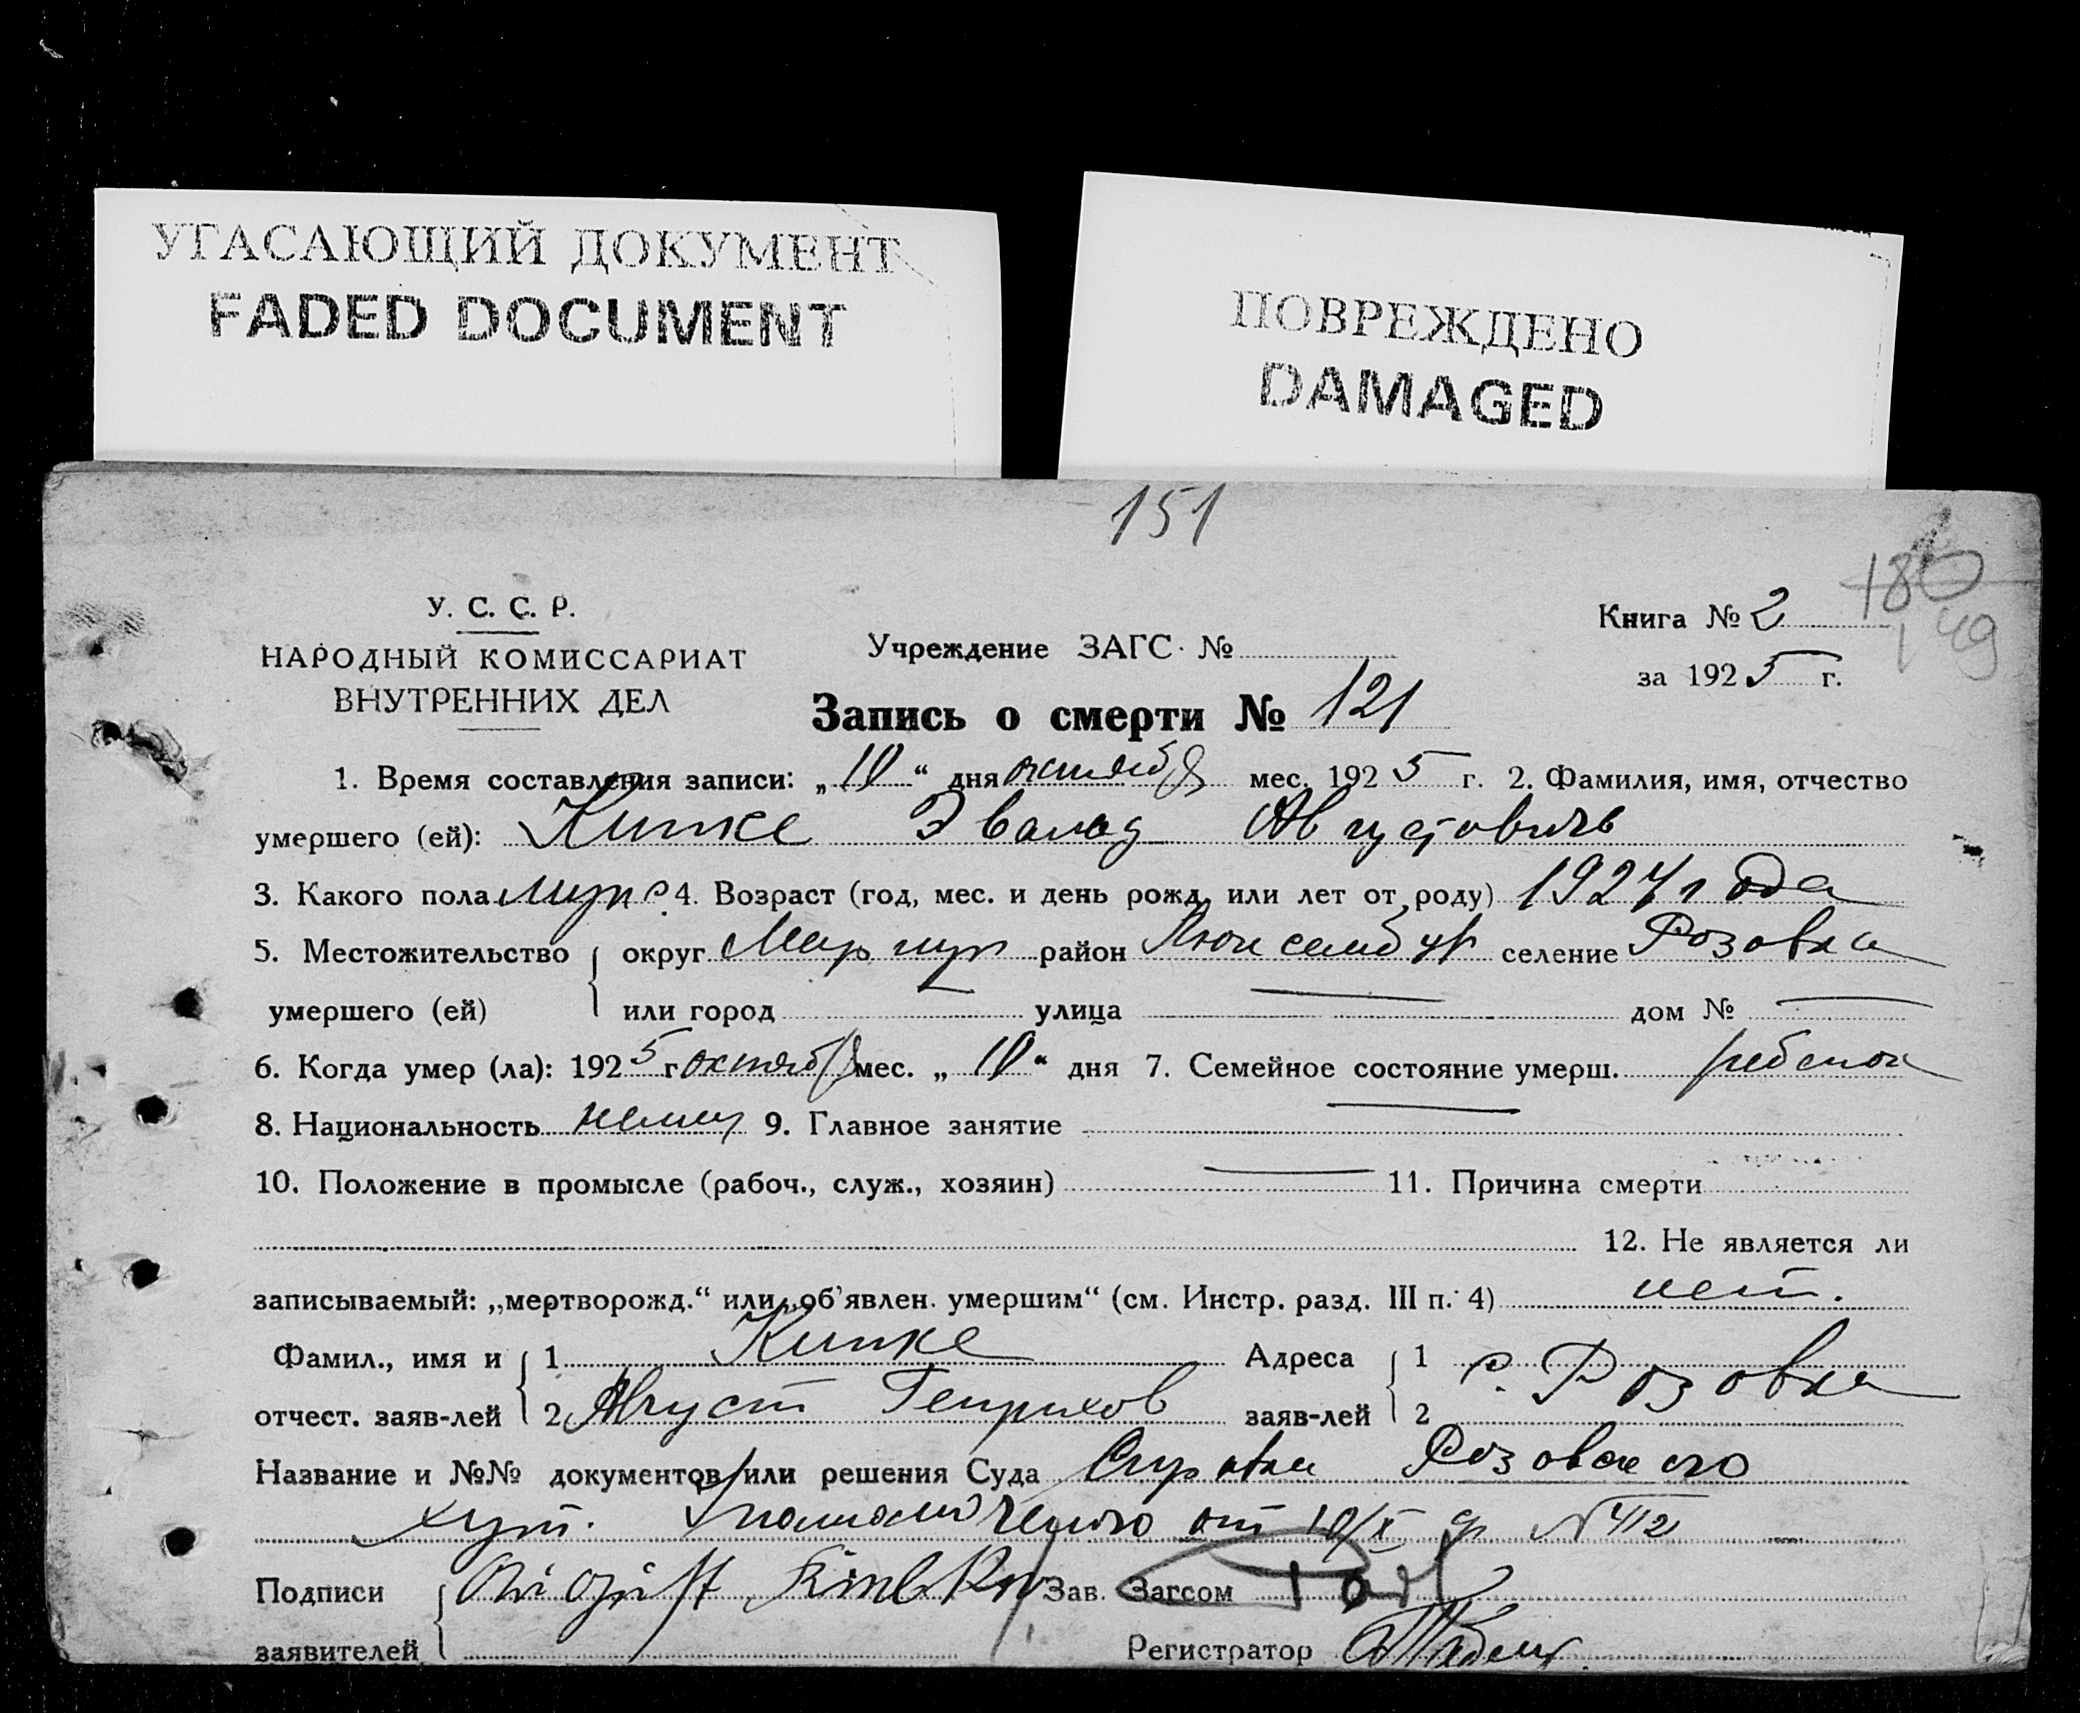 УГАСАЮЩИЙ ДОКУМЕНТ
FADED DOCUMENT
ПОВРЕЖДЕНО
DAMAGED
151
180
149
У. С. С. Р.
НАРОДНЫЙ КОМИССАРИАТ
ВНУТРЕННИХ ДЕЛ
Учреждение ЗАГС №
Книга № 2
за 1925 г.
Запись о смерти № 121
1. Время составления записи: „10“ дня октяб мес. 1925 г. 2. Фамилия, имя, отчество
умершего (ей): Кипке Эвальд Августовичъ
3. Какого пола муж 4. Возраст (год, мес. и день рожд. или лет от роду) 1924 года
5. Местожительство округ район селение Розовка
умершего (ей) или город улица — дом № —
6. Когда умер (ла): 1925 г октяб мес. „10“ дня 7. Семейное состояние умерш. ребенок
8. Национальность немец 9. Главное занятие —
10. Положение в промысле (рабоч., служ., хозяин) — 11. Причина смерти
12. Не является ли
записываемый: „мертворожд.“ или „об'явлен. умершим“ (см. Инстр. разд. III п. 4) нет.
Фамил., имя и 1 Кипке Адреса 1 с. Розовка
отчест. заяв-лей 2 Август Генрихов заяв-лей 2
Название и №№ документов или решения Суда Справки Розовского
хут. от 10/X № 412
Подписи Зав. Загсом
заявителей Регистратор